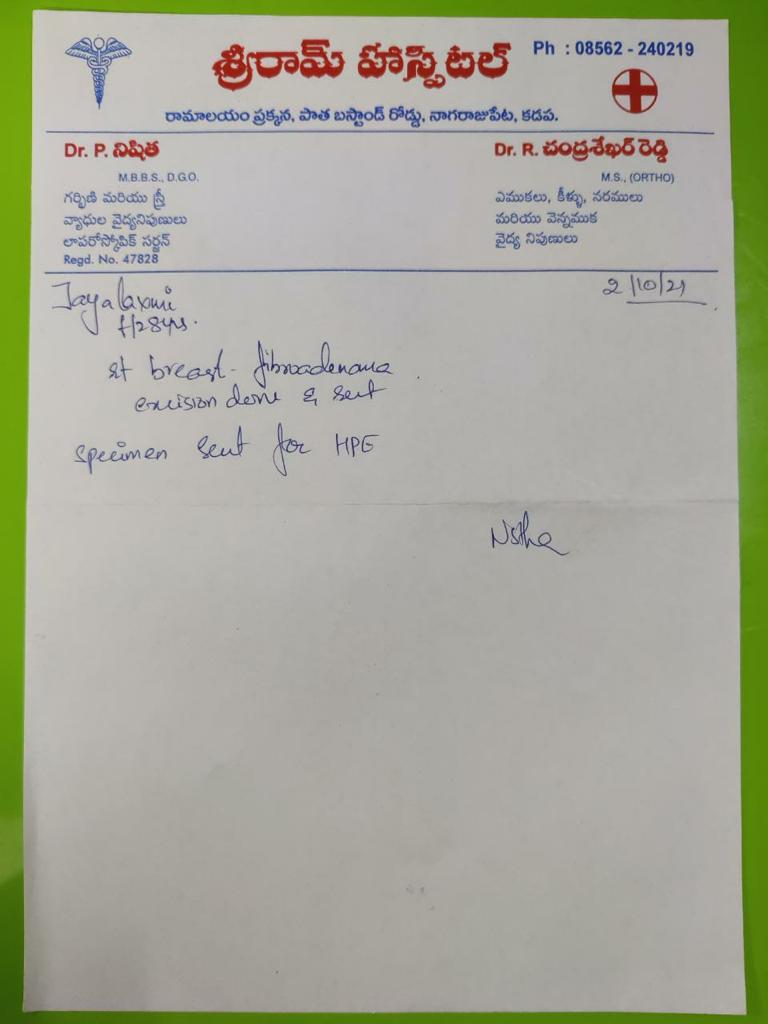 శ్రీరామ్ హాస్పిటల్
Ph : 08562 - 240219
రామాలయం ప్రక్కన, పాత బస్టాండ్ రోడ్డు, నాగరాజుపేట, కడప.
Dr. P. నిషిత
M.B.B.S., D.G.O.
గర్భిణి మరియు స్త్రీ
వ్యాధుల వైద్యనిపుణులు
లాపరోస్కోపిక్ సర్జన్
Regd. No. 47828
Dr. R. చంద్రశేఖర్ రెడ్డి
M.S., (ORTHO)
ఎముకలు, కీళ్ళు, నరములు
మరియు వెన్నముక
వైద్య నిపుణులు
2/10/21
Jayalaxmi
f/28yrs.
rt breast - fibroadenoma
excision done & sent
specimen sent for HPE